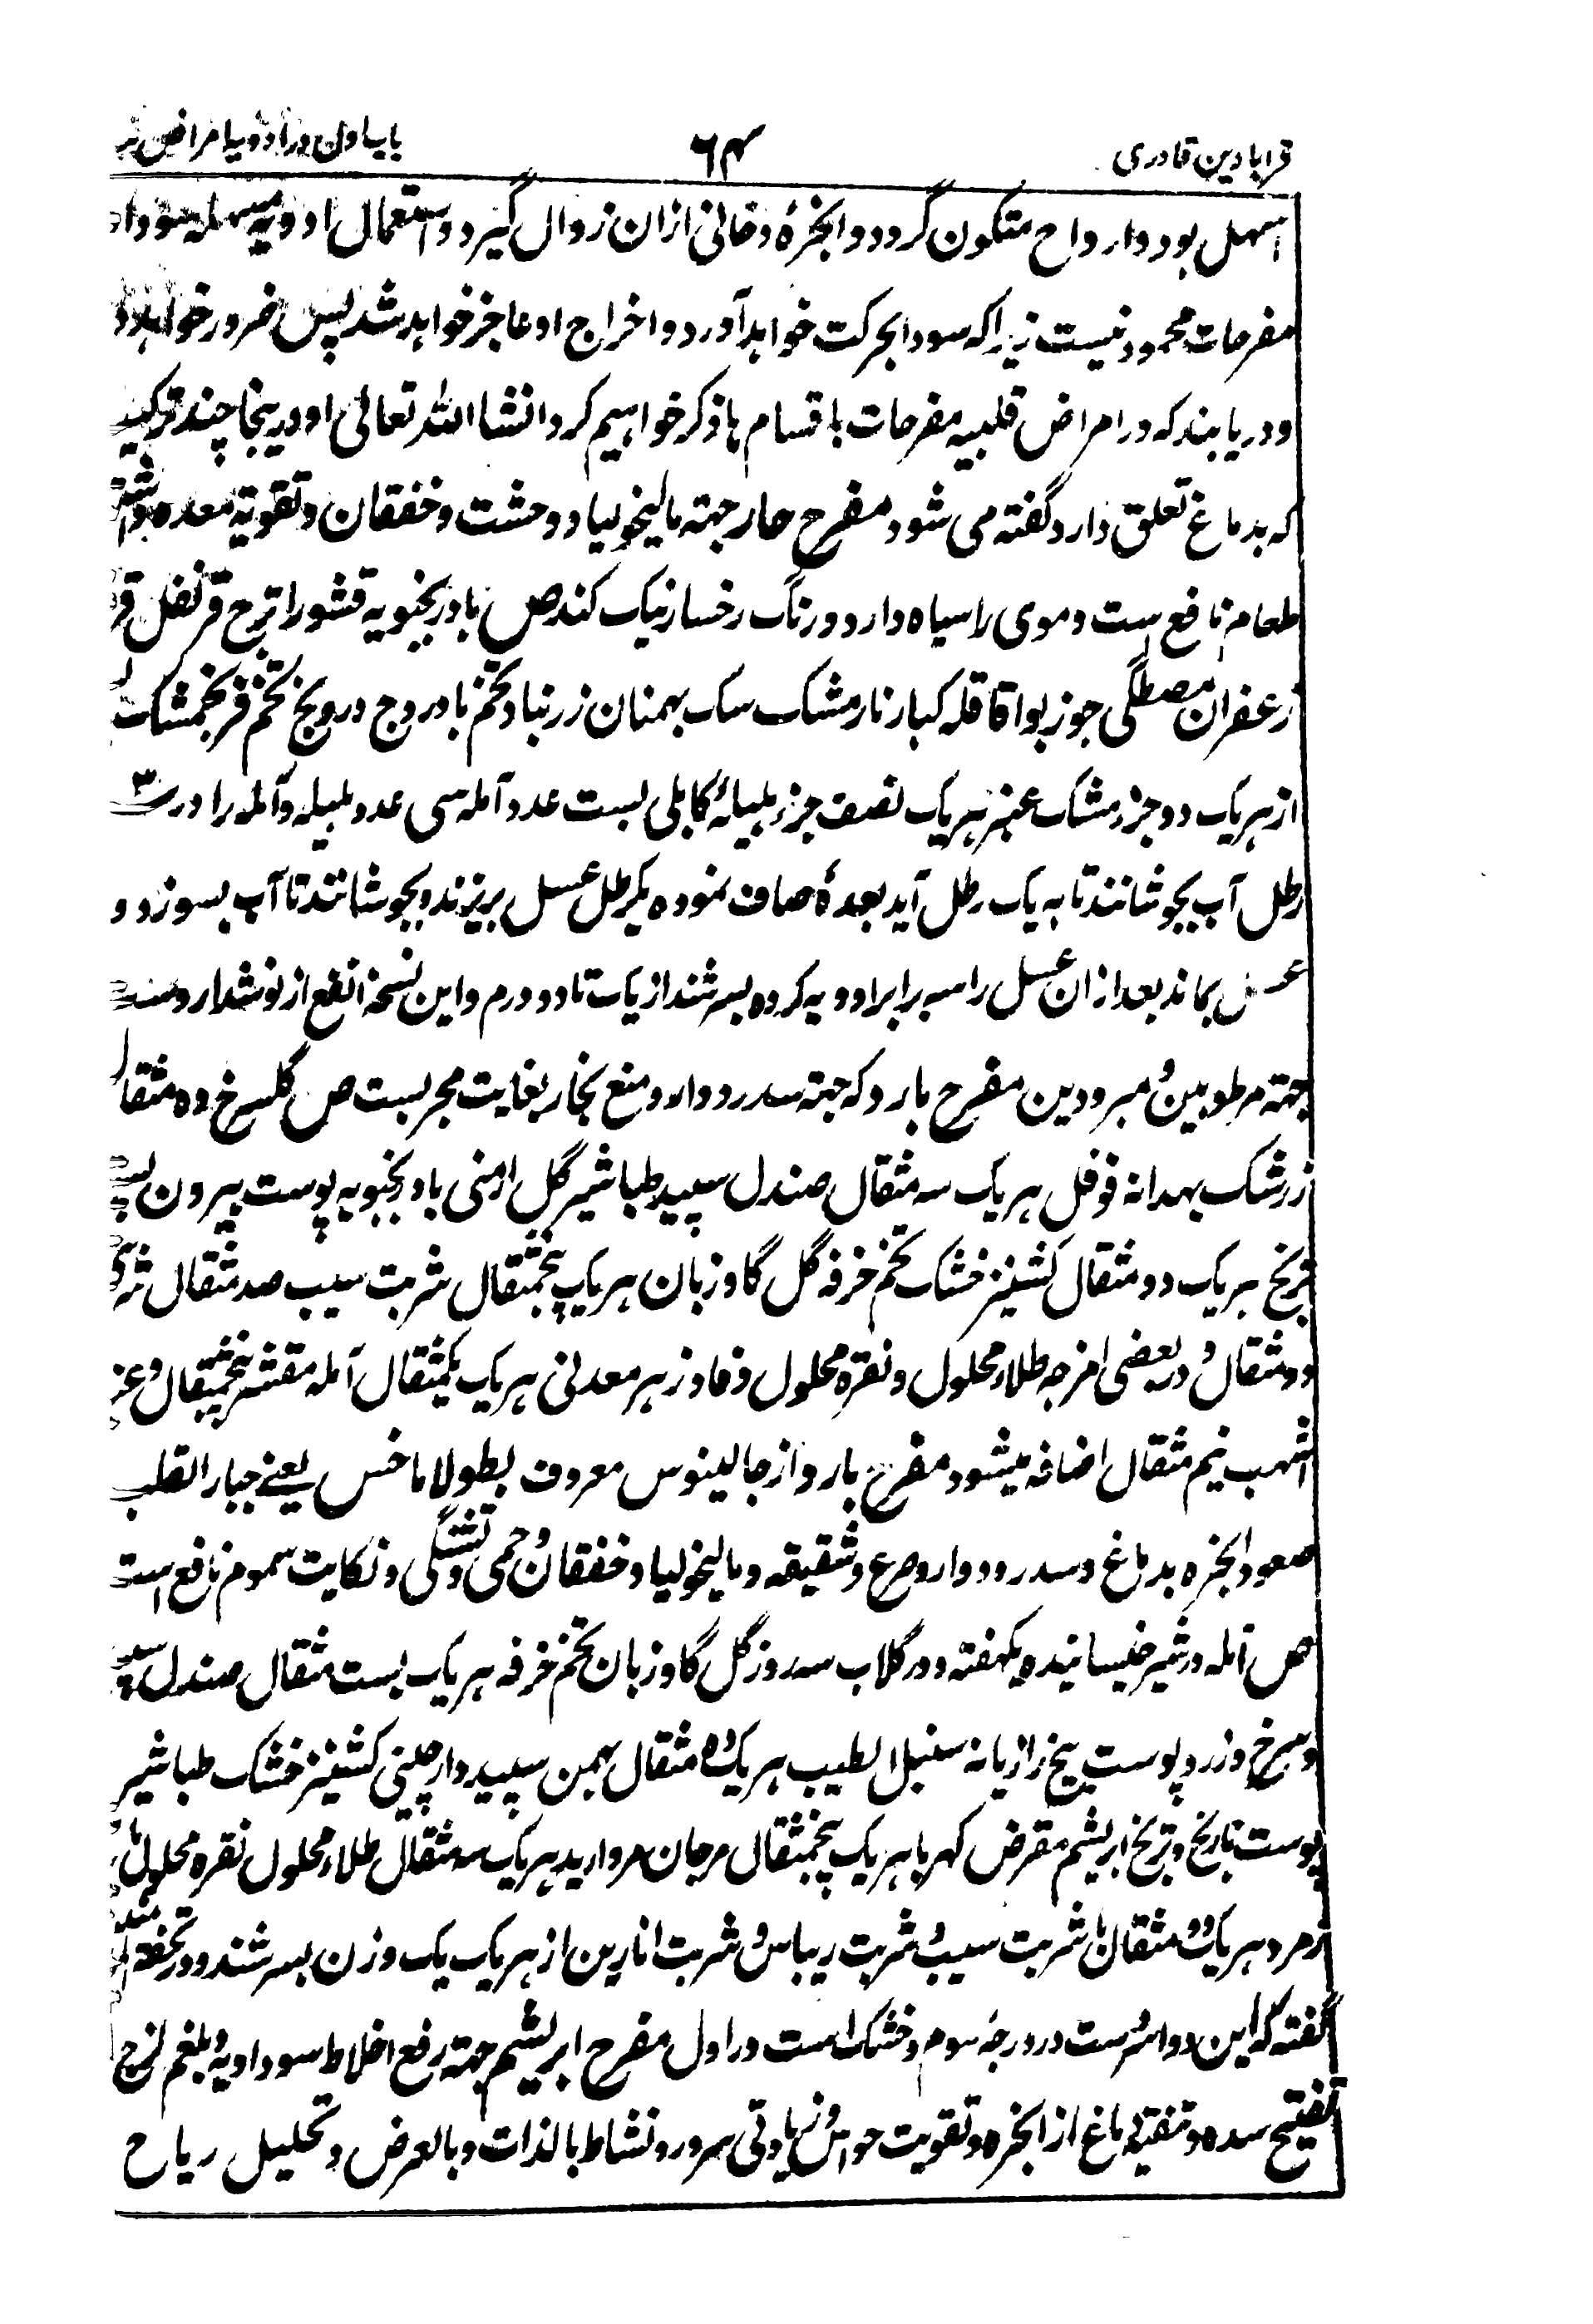 قرابادین قادری ۶۴ باب اول در ادویه امراض
اسهل بود و ارواح متکون گردد و ابخرهٔ دخانی ازان زوال گیرد و استعمال ادویه مسهله سودا
مفرحات محمود نیست زیراکه سودا بحرکت خواهد آورد و اخراج او عاجز خواهد شد پس ضرور خواهد
و دریابند که در امراض قلبیه مفرحات باقسام ها ذکر خواهیم کرد انشا الله تعالی و درینجا چند ترکیب
که بدماغ تعلق دارد گفته می شود مفرح حار جهته مالیخولیا و وحشت و خفقان و تقویة معده
طعام نافع ست و موی را سیاه دارد و رنگ رخسار نیک کند ص بادرنجبویه قشور اترج قرنفل
زعفران مصطگی جوزبوا قاقله کبار نارمشک سک بهمنان زرنباد تخم بادروج درونج تخم فرنجمشک
از هریک دو جزء مشک عنبر هریک نصف جزء هلیلهٔ کابلی بست عدد آمله سی عدد هلیله و آمله را در سه
رطل آب بجوشانند تا به یک رطل آید بعدهٔ صاف نموده یکرطل عسل بریزند و بجوشانند تا آب بسوزد و
عسل بماند بعد ازان عسل را سه برابر ادویه کرده بسرشند از یک تا دو درم و این نسخه انفع از نوشدارو ست
جهته مرطوبین و مبرودین مفرح بارد که جهته سدر و دوار و منع بخار بغایت مجربست ص گلسرخ ده مثقال
زرشک بهدانه فوفل هریک سه مثقال صندل سپید طباشیر گل ارمنی بادرنجبویه پوست بیرون پسته
ترنج هریک دو مثقال کشنیز خشک تخم خرفه گل گاوزبان هریک پنجمثقال شربت سیب صد مثقال
دو مثقال و در بعضی امزجه طلاء محلول و نقره محلول و فادزهر معدنی هریک یکمثقال آمله مقشر پنجمثقال و عنبر
اشهب نیم مثقال اضافه میشود مفرح بارد از جالینوس معروف بطولاماخس یعنے جبار القلب
صعود ابخره بدماغ و سدر و دوار و صرع و شقیقه و مالیخولیا و خفقان و حمی و تشنگی و نکایت سموم نافع است
ص آمله در شیر خیسانیده یکهفته و در گلاب سه روز گل گاوزبان تخم خرفه هریک بست مثقال صندل سپید
و سرخ و زرد پوست بیخ رازیانه سنبل الطیب هریک ده مثقال بهمن سپید دارچینی کشنیز خشک طباشیر
پوست نارنج و ترنج ابریشم مقرض کهربا هریک پنجمثقال مرجان مروارید هریک سه مثقال طلاء محلول نقره محلول
زمرد هریک دو مثقال با شربت سیب و شربت ریباس و شربت انارین از هریک یک وزن بسرشند و در تحفة
گفته که این دوا سرد ست در درجهٔ سوم و خشک است در اول مفرح ابریشم جهته رفع اخلاط سوداویه و بلغم لزج
تفتیح سده و تنقیة دماغ از ابخره و تقویت حواس و زیادتی سرور و نشاط بالذات و بالعرض و تحلیل ریاح